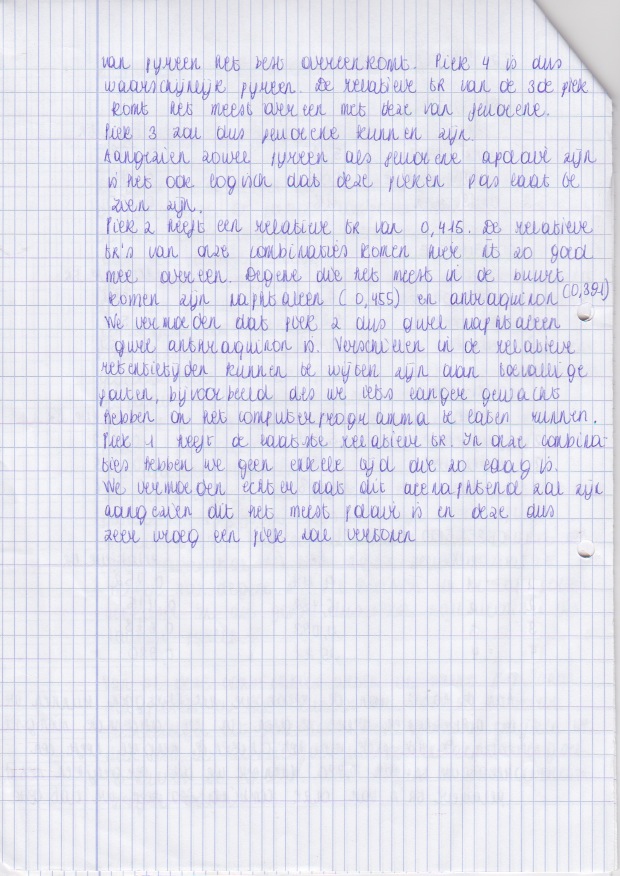 van pyreen het best overeenkomt. Piek 4 is dus
waarschijnlijk pyreen. De relatieve tR van de 3de piek
komt het meest overeen met deze van fluorene.
Piek 3 zou dus fluorene kunnen zijn.
Aangezien zowel pyreen als fluorene apolair zijn
is het ook logisch dat deze pieken pas laat te
zien zijn.
Piek 2 heeft een relatieve tR van 0,415. De relatieve
tR's van onze combinaties komen hier niet zo goed
mee overeen. Degene die het meest in de buurt
komen zijn naphtaleen (0,455) en antraquinon (0,391)
We vermoeden dat piek 2 dus ofwel naphtaleen
ofwel anthraquinon is. Verschillen in de relatieve
retentietijden kunnen te wijten zijn aan toevallige
fouten, bijvoorbeeld als we iets langer gewacht
hebben om het computerprogramma te laten runnen.
Piek 1 heeft de laatste relatieve tR. In onze combina-
ties hebben we geen enkele tijd die zo laag is.
We vermoeden echter dat dit acenaphtene zal zijn
aangezien dit het meest polair is en deze dus
zeer vroeg een piek zal vertonen